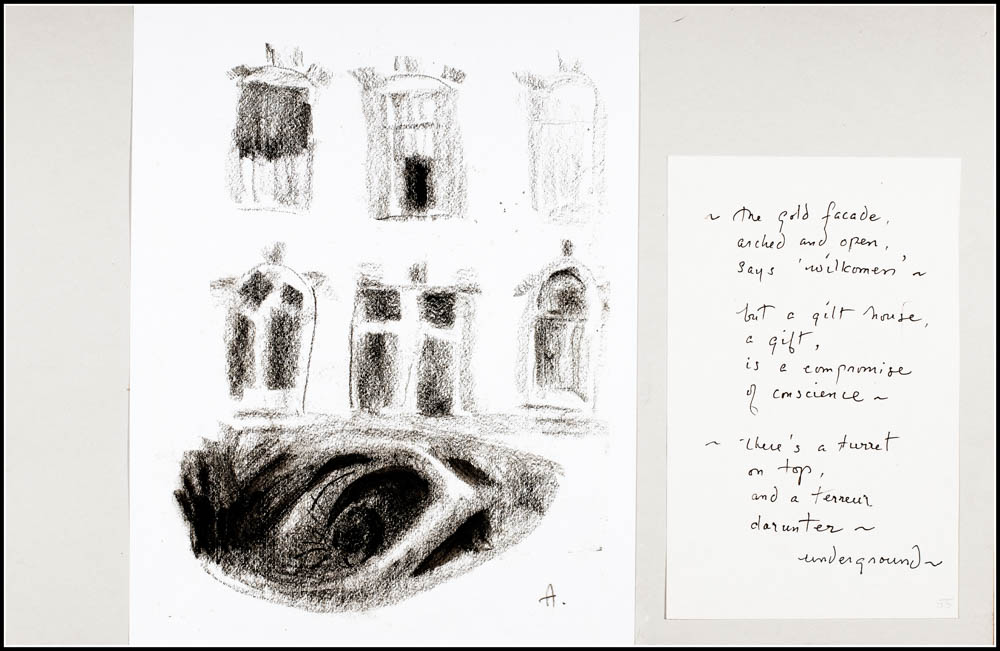 ~ The gold facade,
arched and open,
says 'wilkomen' ~
but a gilt house,
a gift,
is a compromise
of conscience ~
~ There's a turret
on top,
and a terreur
darunter ~
underground ~
A.
55